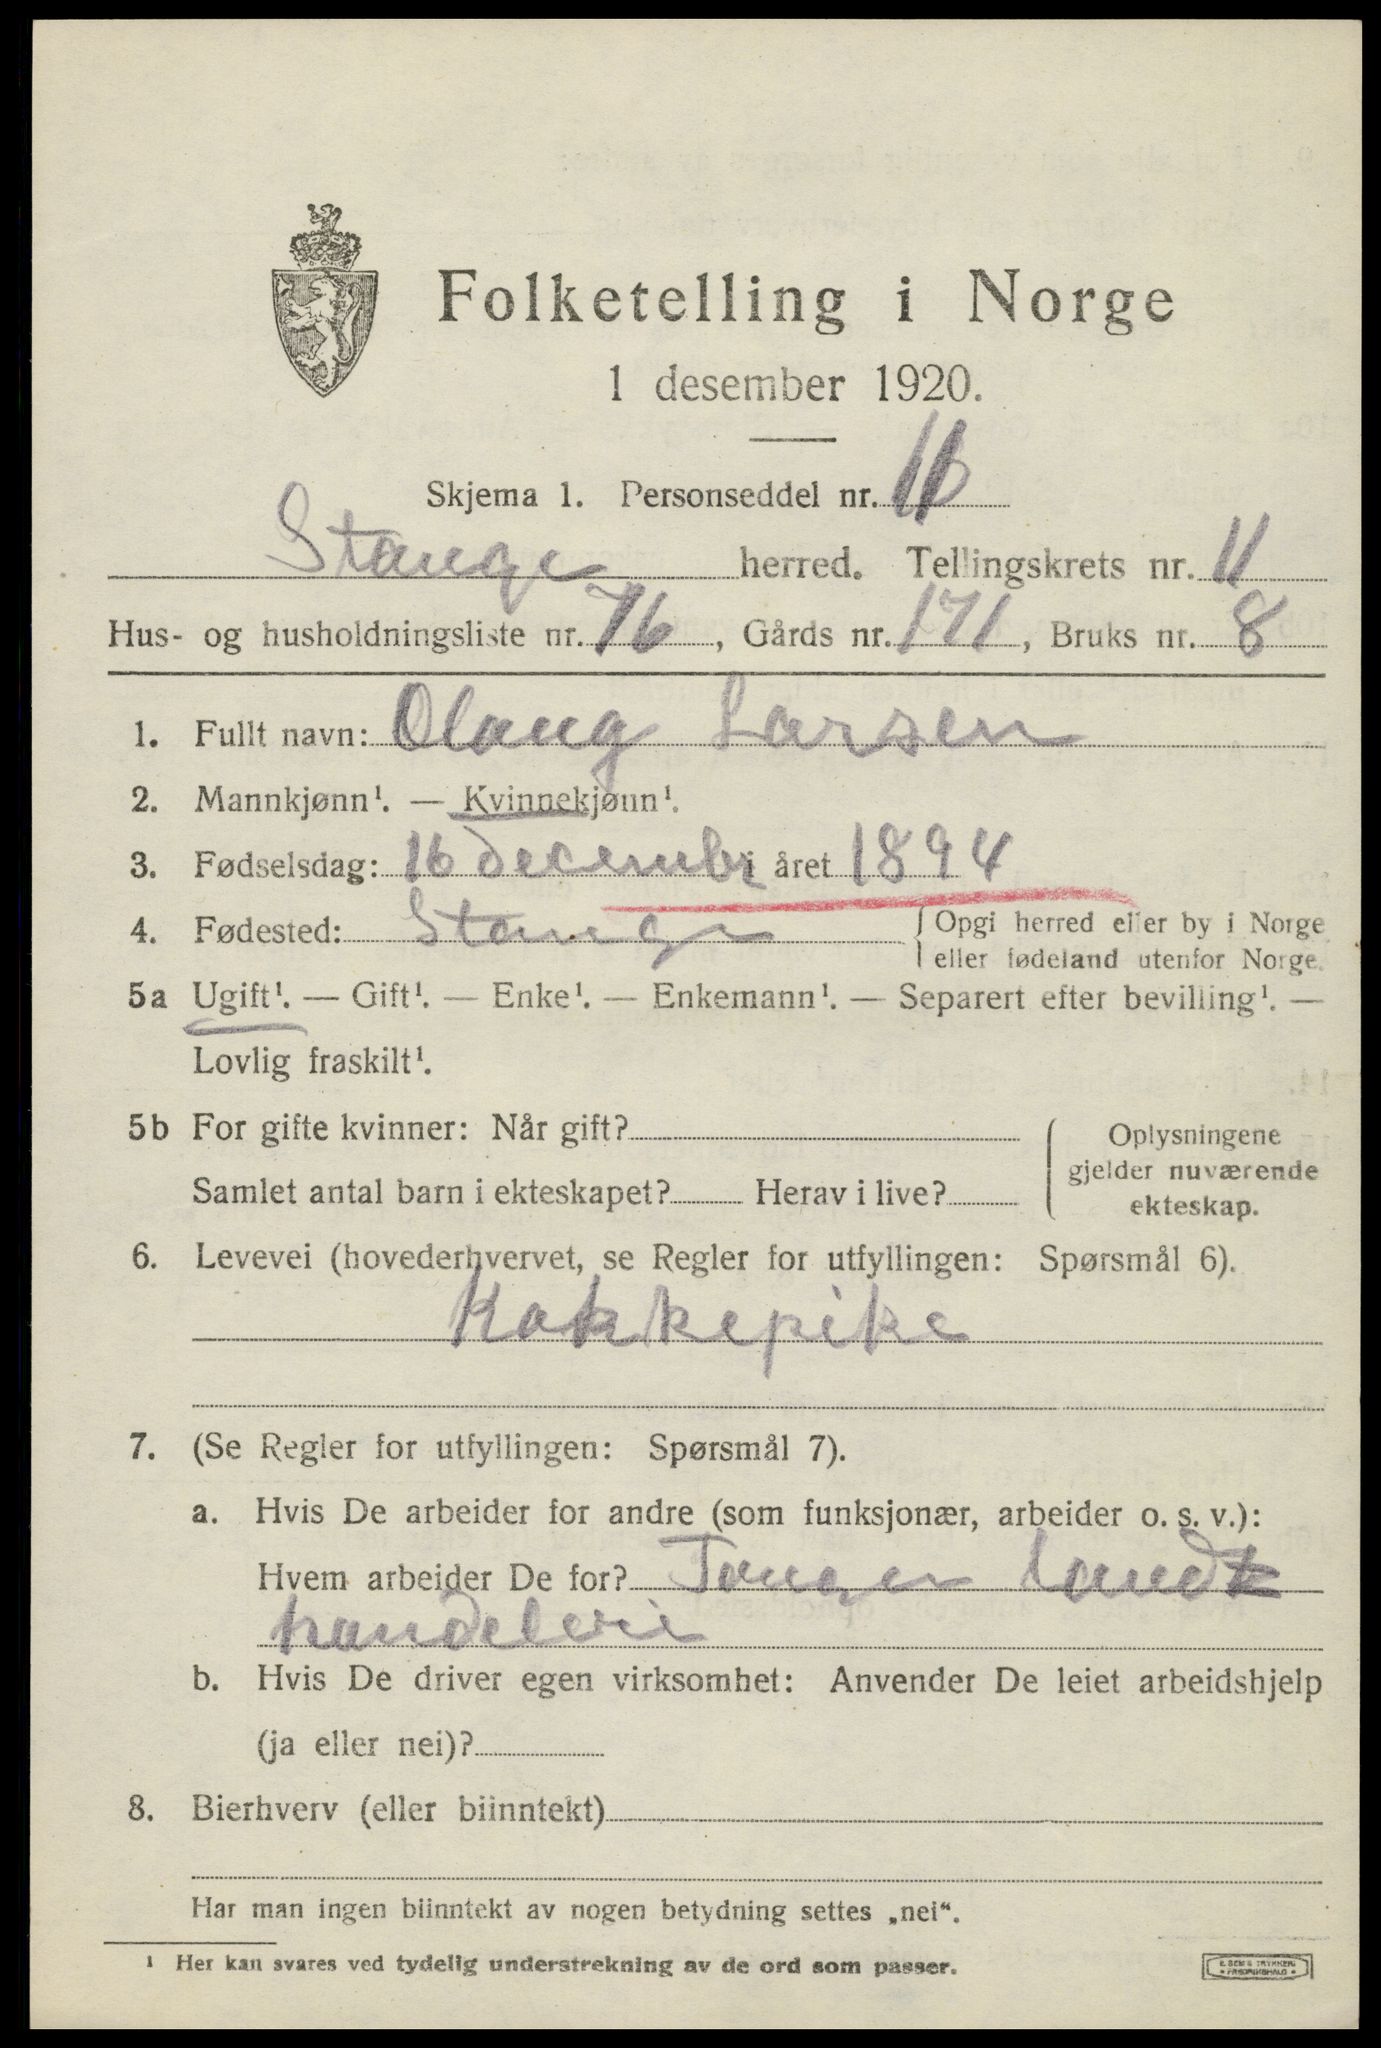 Folketelling i Norge
1 desember 1920.
Skjema 1. Personseddel nr.
Stange herred. Tellingskrets nr. 11
Hus- og husholdningsliste nr. 76, Gårds nr. 171, Bruks nr. 8
1. Fullt navn: Olaug Larsen
2. Mannkjønn¹. — Kvinnekjønn¹.
3. Fødselsdag: 16 decembr i året 1894
4. Fødested: Stange { Opgi herred eller by i Norge
eller fødeland utenfor Norge.
5a Ugift¹. — Gift¹. — Enke¹. — Enkemann¹. — Separert efter bevilling¹. —
Lovlig fraskilt¹.
5b For gifte kvinner: Når gift?
Samlet antal barn i ekteskapet? Herav i live?
{ Oplysningene
gjelder nuværende
ekteskap.
6. Levevei (hovederhvervet, se Regler for utfyllingen: Spørsmål 6).
Kokkepike
7. (Se Regler for utfyllingen: Spørsmål 7).
a. Hvis De arbeider for andre (som funksjonær, arbeider o. s. v.):
Hvem arbeider De for? Tangen Land
handeleri
b. Hvis De driver egen virksomhet: Anvender De leiet arbeidshjelp
(ja eller nei)?
8. Bierhverv (eller biinntekt)
Har man ingen biinntekt av nogen betydning settes „nei“.
¹ Her kan svares ved tydelig understrekning av de ord som passer.
E. SEM'S TRYKKERI
FREDRIKSHALD